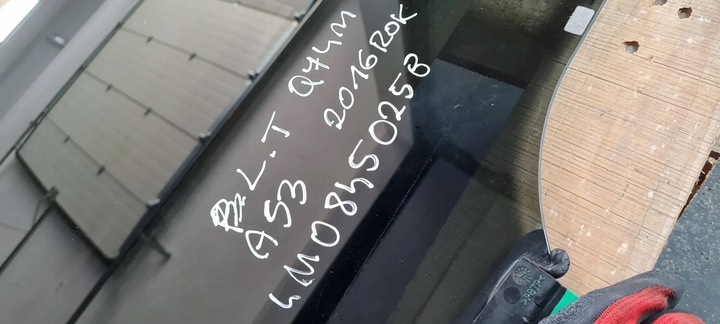 L.T Q74M
AS3 2016 ROK
4M0845025B